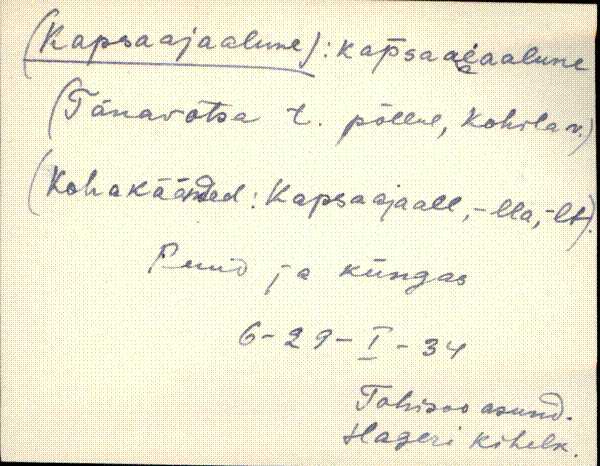 (Kapsaajaalune): kapsaaiaalune
(Tänavotsa t. põllul, Kohila v.)
(Kohakäänded: Kapsaajaall, -lla, -lt).
Puud ja küngas
6-29-I-34
Tohisoo asund.
Hageri kihelk.